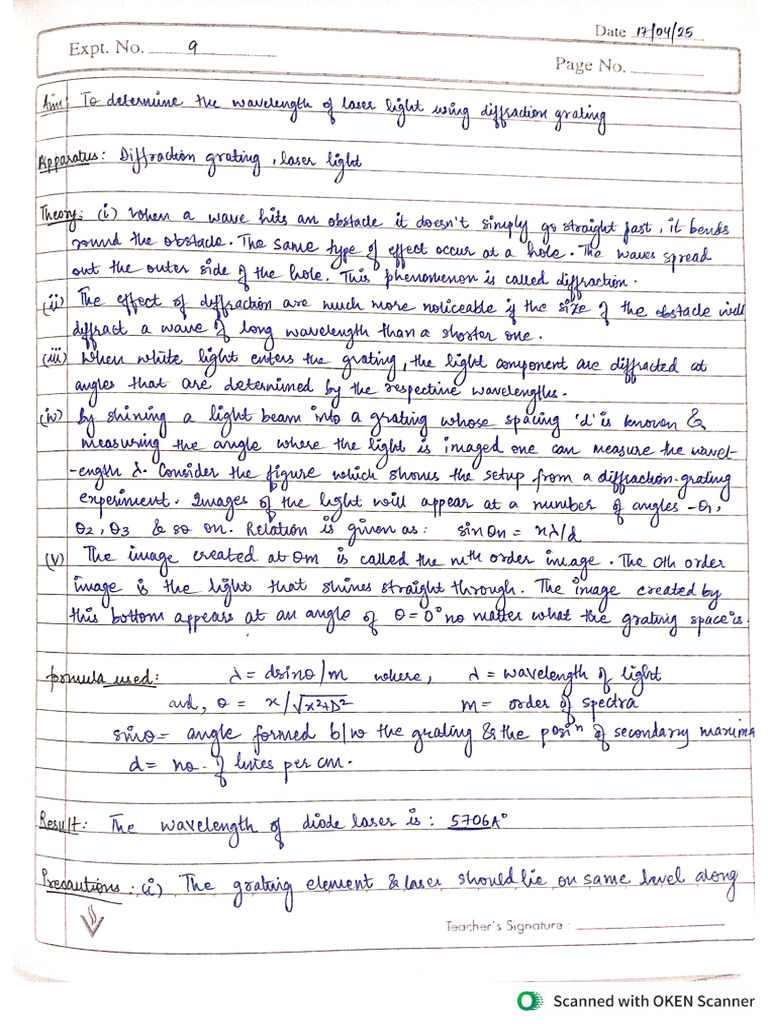 Date 17/04/25
Expt. No. 9
Page No.
Aim: To determine the wavelength of laser light using diffraction grating
Apparatus: Diffraction grating, laser light
Theory: (i) When a wave hits an obstacle it doesn't simply go straight past, it bends
round the obstacle. The same type of effect occur at a hole. The waves spread
out the outer side of the hole. This phenomenon is called diffraction.
(ii) The effect of diffraction are much more noticeable if the size of the obstacle will
diffract a wave of long wavelength than a shorter one.
(iii) When white light enters the grating, the light component are diffracted at
angles that are determined by the respective wavelengths.
(iv) By shining a light beam into a grating whose spacing 'd' is known &
measuring the angle where the light is imaged one can measure the wavel-
-ength λ. Consider the figure which shows the setup from a diffraction-grating
experiment. Images of the light will appear at a number of angles -θ1,
θ2, θ3 & so on. Relation is given as: sinθn = nλ/d
(v) The image created at θm is called the mth order image. The 0th order
image is the light that shines straight through. The image created by
this bottom appears at an angle of θ=0° no matter what the grating space is.
formula used: λ = dsinθ/m where, λ = wavelength of light
and, θ = x/√x²+D² m = order of spectra
sinθ = angle formed b/w the grating & the posiⁿ of secondary maxima
d = no. of lines per cm.
Result: The wavelength of diode laser is: 5706A°
Precautions: (i) The grating element & laser should lie on same level along
Teacher's Signature
Scanned with OKEN Scanner